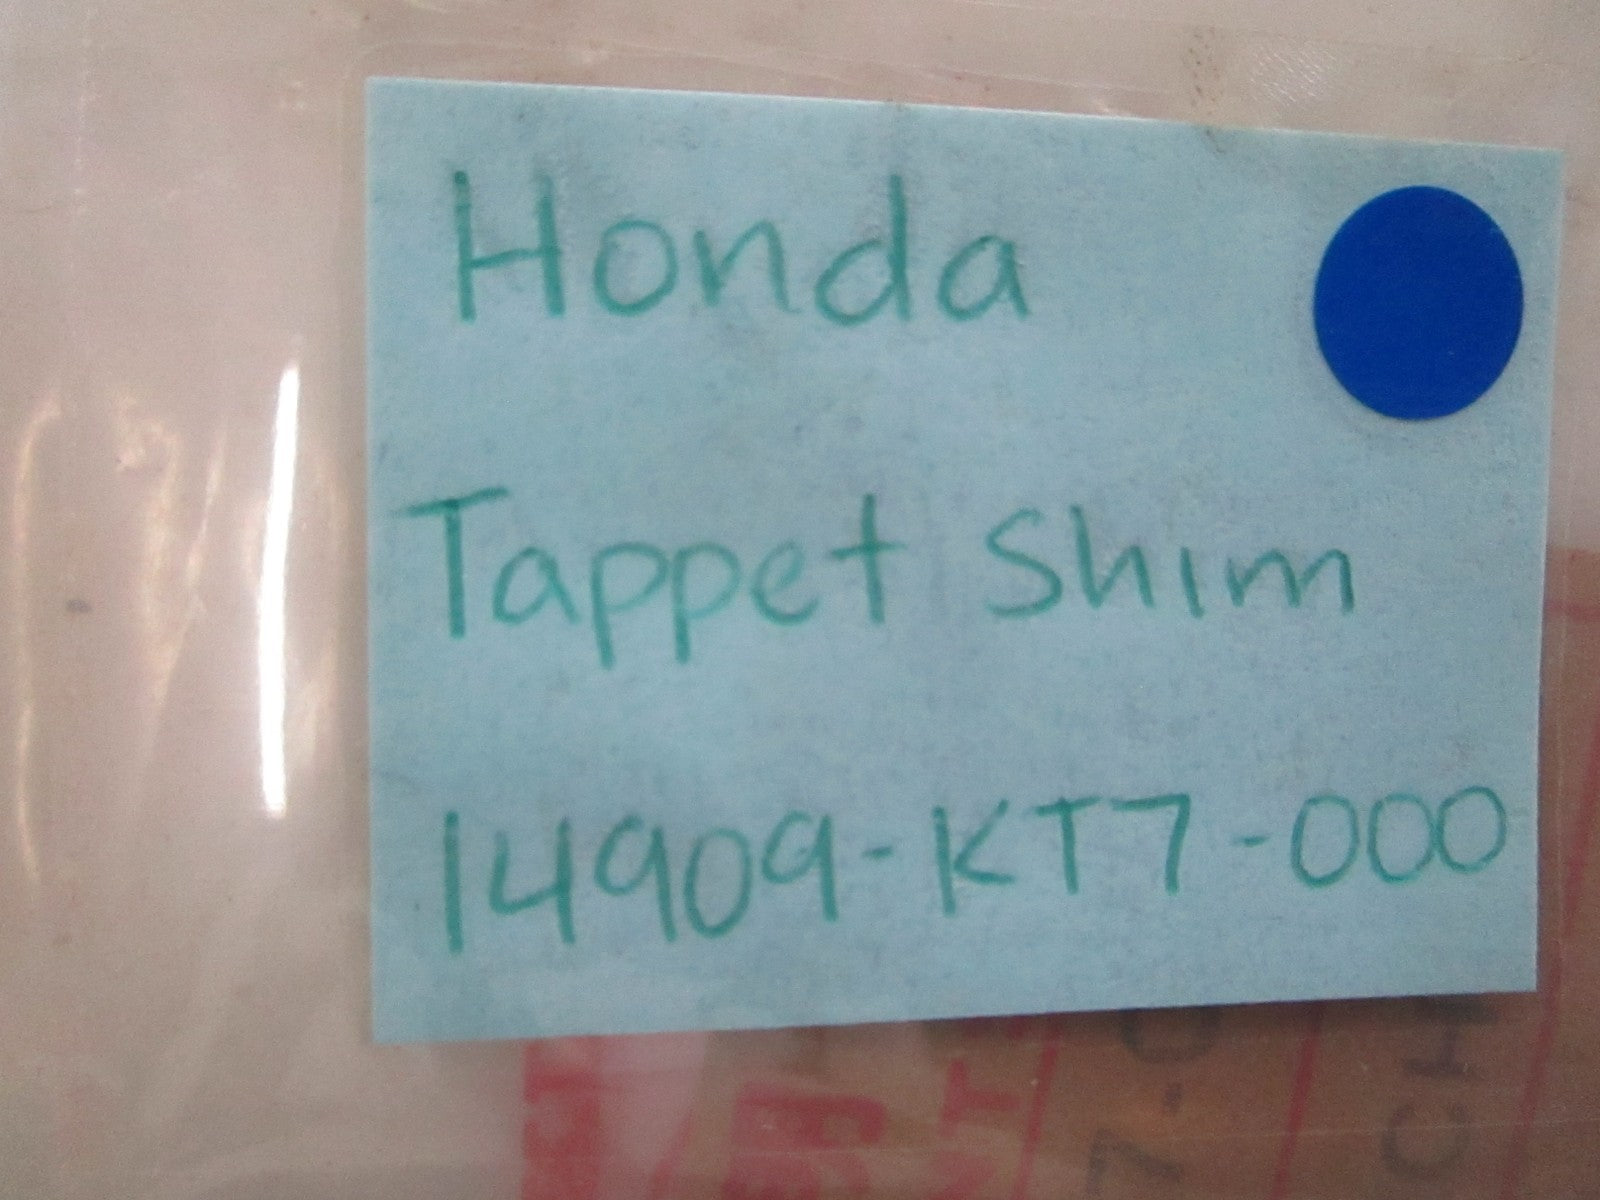 Honda
Tappet Shim
14909-KT7-000